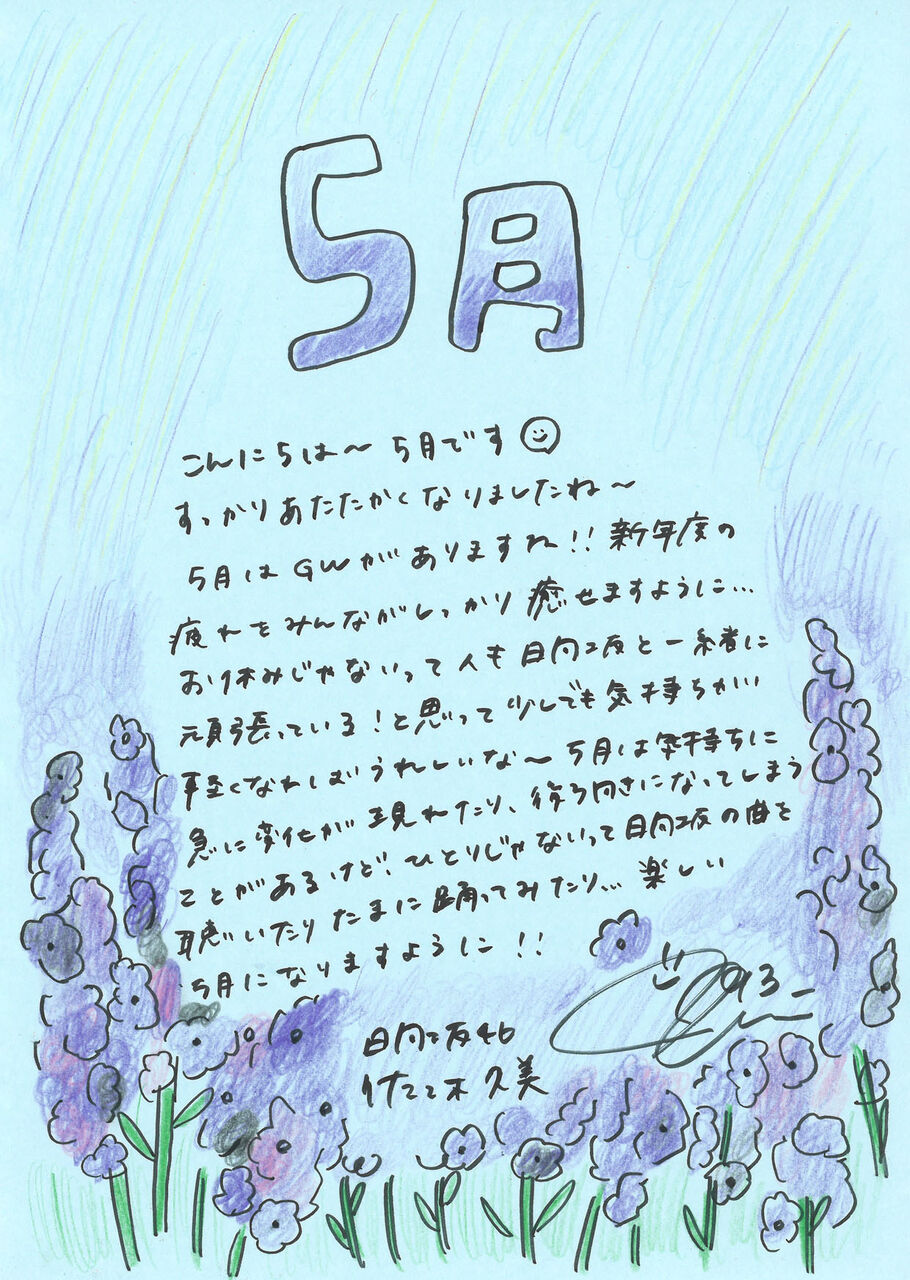 5月
こんにちは～ 5月です
すっかりあたたかくなりましたね～
5月はGWがありますね!! 新年度の
疲れをみんながしっかり癒せますように…
お休みじゃないって人も日向坂と一緒に
頑張っている!と思って少しでも気持ちが
軽くなればうれしいな～ 5月は気持ちに
急に変化が現れたり、後ろ向きになってしまう
ことがあるけど!ひとりじゃないって日向坂の曲を
聴いたりたまに踊ってみたり… 楽しい
5月になりますように!!
日向坂46
佐々木久美